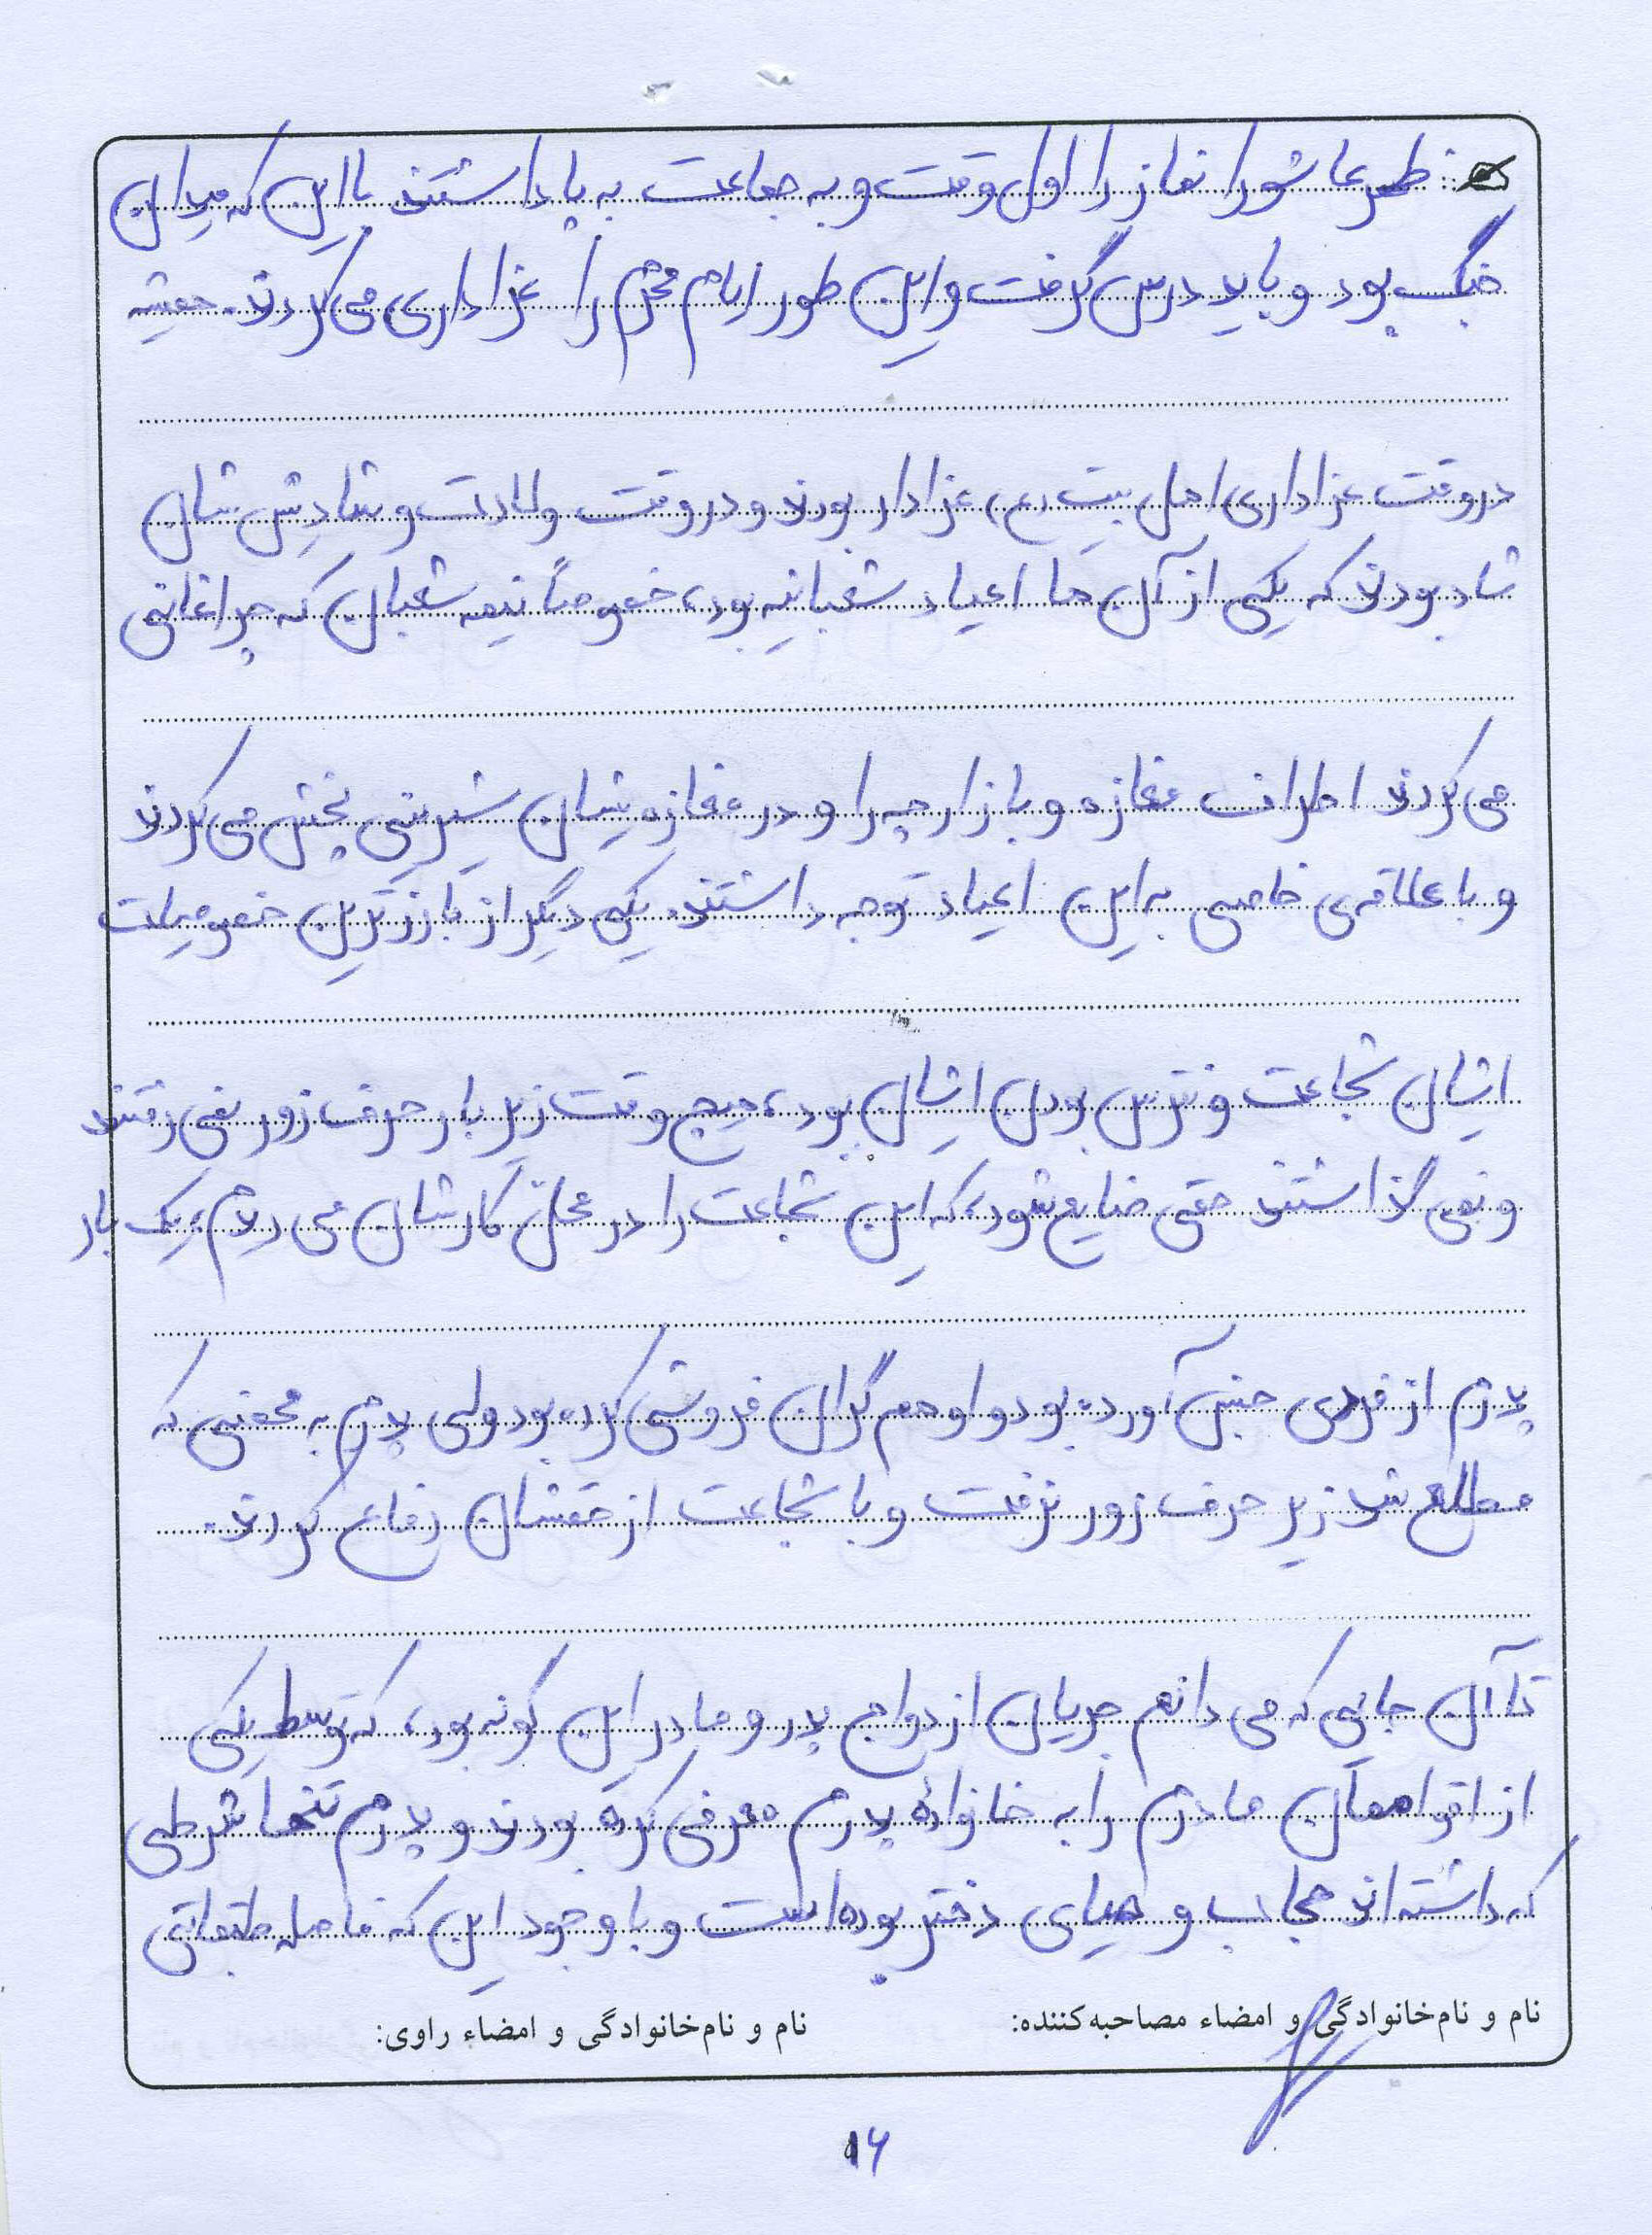 ظهر عاشورا نماز را اول وقت و به جماعت به پا داشتند با این که میدان
جنگ بود و باید درس گرفت و این طور ایام محرم را عزاداری می کردند. همیشه
در وقت عزاداری اهل بیت (ع) عزادار بودند و در وقت ولادت و شادیش شان
شاد بودند که یکی از آن ها اعیاد شعبانیه بود، خصوصاً نیمه شعبان که چراغانی
می کردند اطراف مغازه و بازارچه را و در مغازه یشان شیرینی پخش می کردند
و با علاقه ی خاصی به این اعیاد توجه داشتند. یکی دیگر از بارزترین خصوصیات
ایشان شجاعت و نترس بودن ایشان بود، هیچ وقت زیر بار حرف زور نمی رفتند
و نمی گذاشتند حقی ضایع شود، که این شجاعت را در محل کارشان می دیدم، یک بار
پدرم از فردی جنس آورده بود و او هم گران فروشی کرده بود ولی پدرم به محضی که
مطلع شد زیر حرف زور نرفت و با شجاعت از حقشان دفاع کردند.
تا آن جایی که می دانم جریان ازدواج پدر و مادر این گونه بود، که توسط یکی
از اقوامهمان مادرم را به خانوادۀ پدرم معرفی کرده بودند و پدرم تنها شرطی
که داشته اند حجاب و حیای دختر بوده است و با وجود این که فاصله طبقاتی
نام و نام‌خانوادگی و امضاء مصاحبه‌کننده: نام و نام‌خانوادگی و امضاء راوی:
۱۶